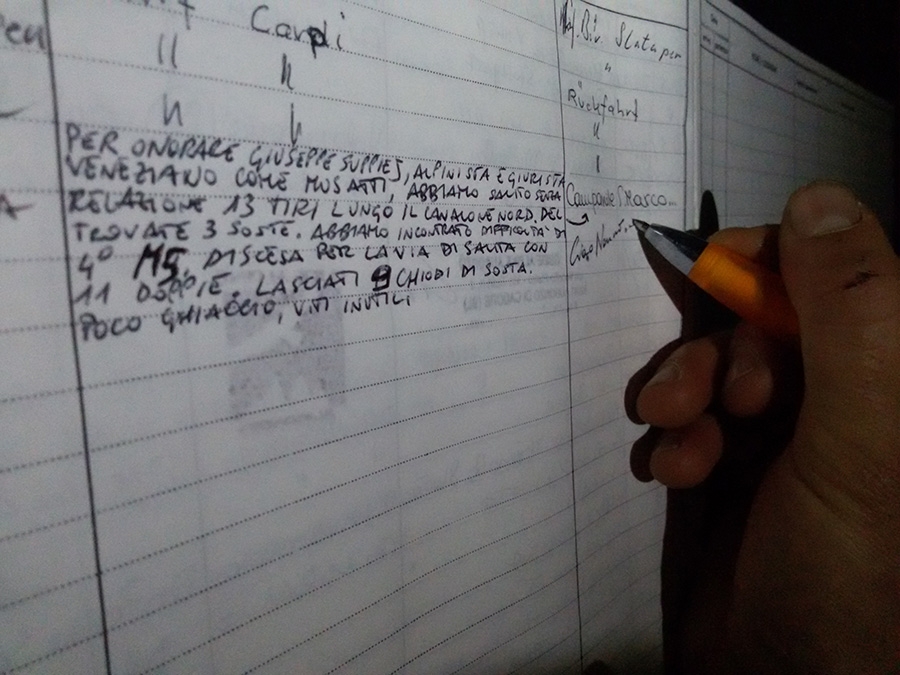 Carpi
Biv. Slataper
"
"
"
Rückfahrt
"
"
"
PER ONORARE GIUSEPPE SUPPIEJ, ALPINISTA E GIURISTA
VENEZIANO COME MUSATTI, ABBIAMO SALITO SENZA
RELAZIONE 13 TIRI LUNGO IL CANALONE NORD. DEL
Campanile S. Marco...
TROVATE 3 SOSTE. ABBIAMO INCONTRATO DIFFICOLTA' DI
4° M5. DISCESA PER LA VIA DI SALITA CON
11 DOPPIE. LASCIATI 9 CHIODI DI SOSTA.
POCO GHIACCIO, VITI INUTILI